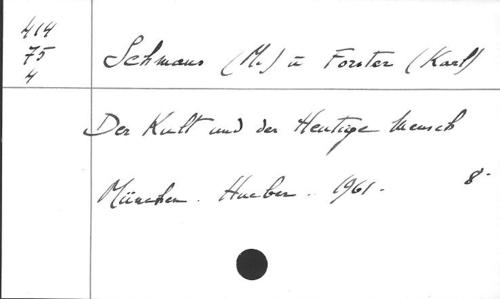 414
75
4
Schmaus (M.) u Forster (Karl)
Der Kult und der Heutige Mensch
München. Hueber. 1961. 8°